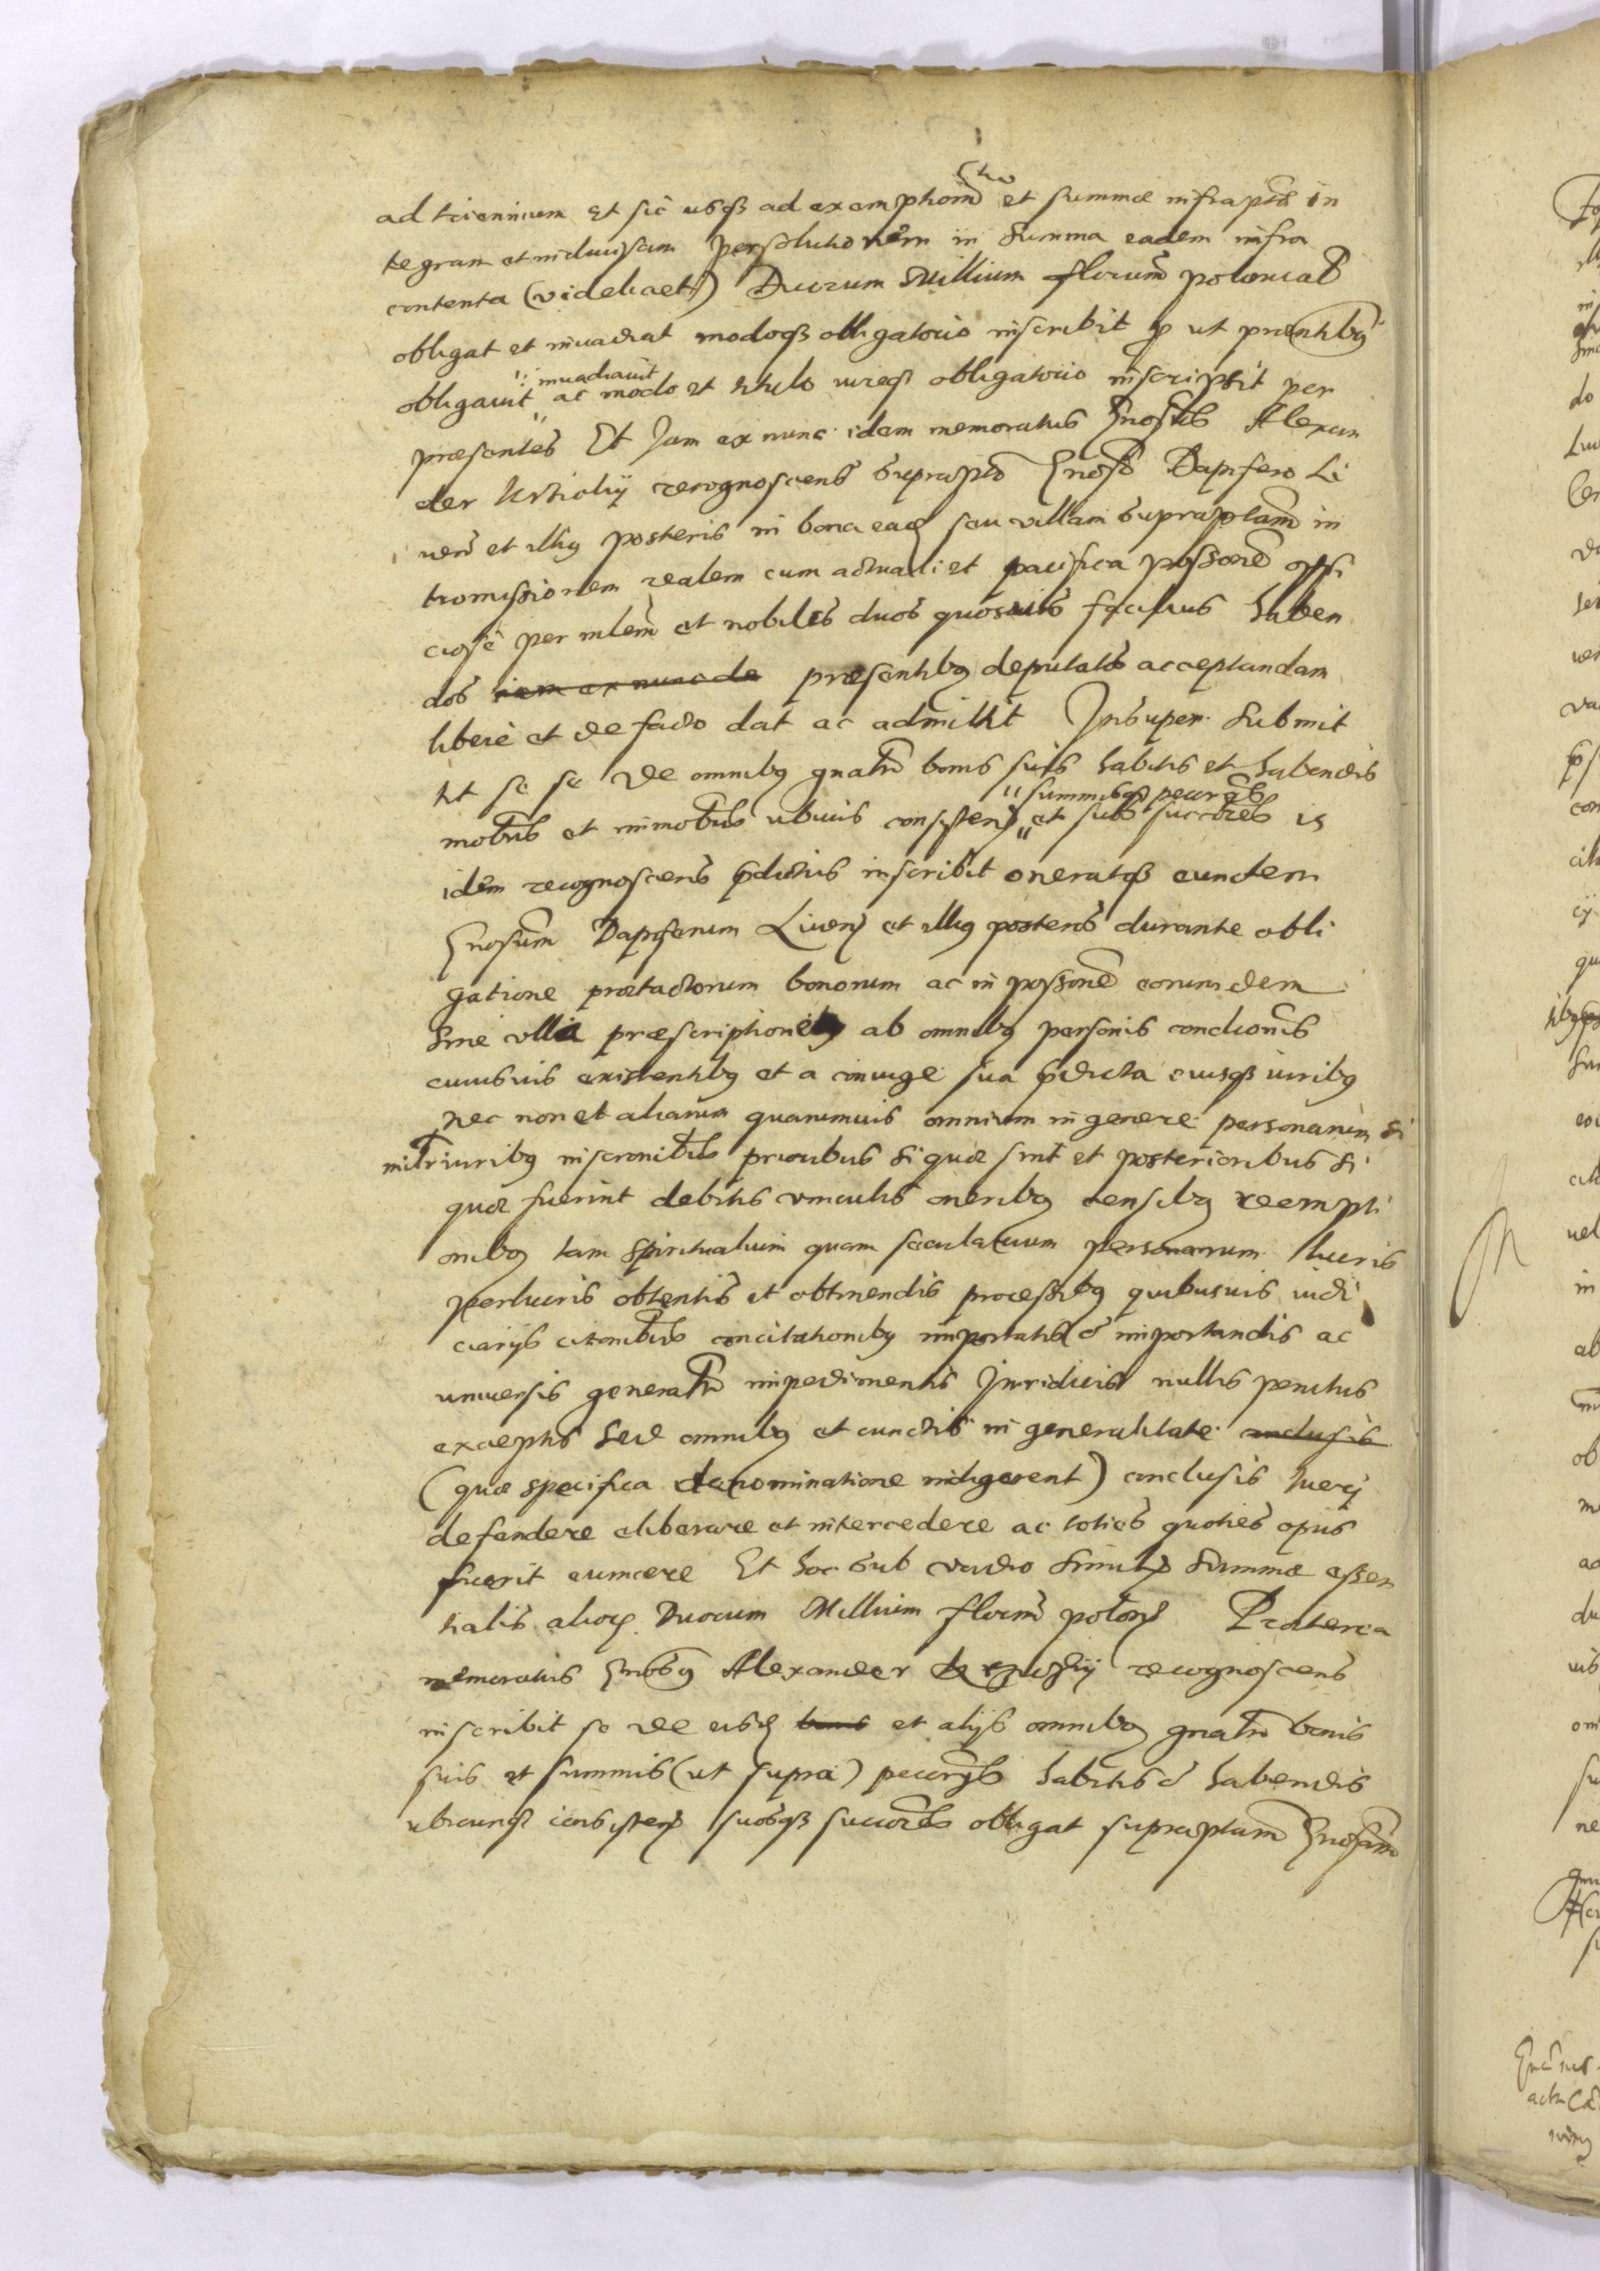 ad triennium et sic usq ad exemptionem et summæ infraptæ in
tegram et indiuisam persolutionem in summa eadem infra
contenta (videlicet) Duorum Millium florum polonical
obligat et inuadiat modoq obligatorio inscribit ut præntibus
obligauit inuadiauit ac modo et titulo iureq obligatorio inscripsit per
præsentes Et Jam ex nunc idem memoratus Gnosus Alexan
der recognoscens supraptо Gnoso Dapifero Li
uen et illius posteris in bona ead seu villam supraptam in
tromissionem realem cum actuali et pacifica possone offi
ciose per mlem et nobiles duos quosuis facilius haben
dos iam ex nunc de præsentibus deputatos acceptandam
libere et de facto dat ac admittit Insuper submit
tit se se de omnibus gnatr bonis suis habitis et habendis
mobbus et immobbus ubiuis consisten summisq pecurys et suis succores is
idem recognoscens pdictus inscribit oneratq eundem
Gnosum Dapiferum Liuen et illius posteros durante obli
gatione prætactorum bonorum ac in possone eorumdem
sine ulla præscriptione ab omnibus personis condionis
cuiusuis existentibus et a coniuge sua pdicta eiusq iuribus
nec non et aliarum quarumuis omnium in genere personarum si
militr iuribus inscronibus prioribus si quæ sint et posterioribus si
quæ fuerint debitis vinculis oneribus censibus reempti
onibus tam spiritualium quam sæcularium personarum lucris
perlucris obtentis et obtinendis processibus quibusuis iudi
ciarijs citonibus concitationibus importatis et importandis ac
uniuersis generatr impedimentis Juridicis nullis penitus
exceptis sed omnibus et cunctis in generalitate conclusis
(quæ specifica denominatione indigerent) conclusis tueri
defendere eliberare et intercedere ac toties quoties opus
fuerit euincere Et hoc sub vadio simili summæ essen
tialis alior Duorum Millium florum polon Præterea
memoratus Gnosus Alexander recognoscens
inscribit se de eisd bonis et alijs omnibus gnatr bonis
suis et summis (ut supra) pecurys habitis et habendis
ubicunq consisten suosq succores obligat supraptam Gnosam